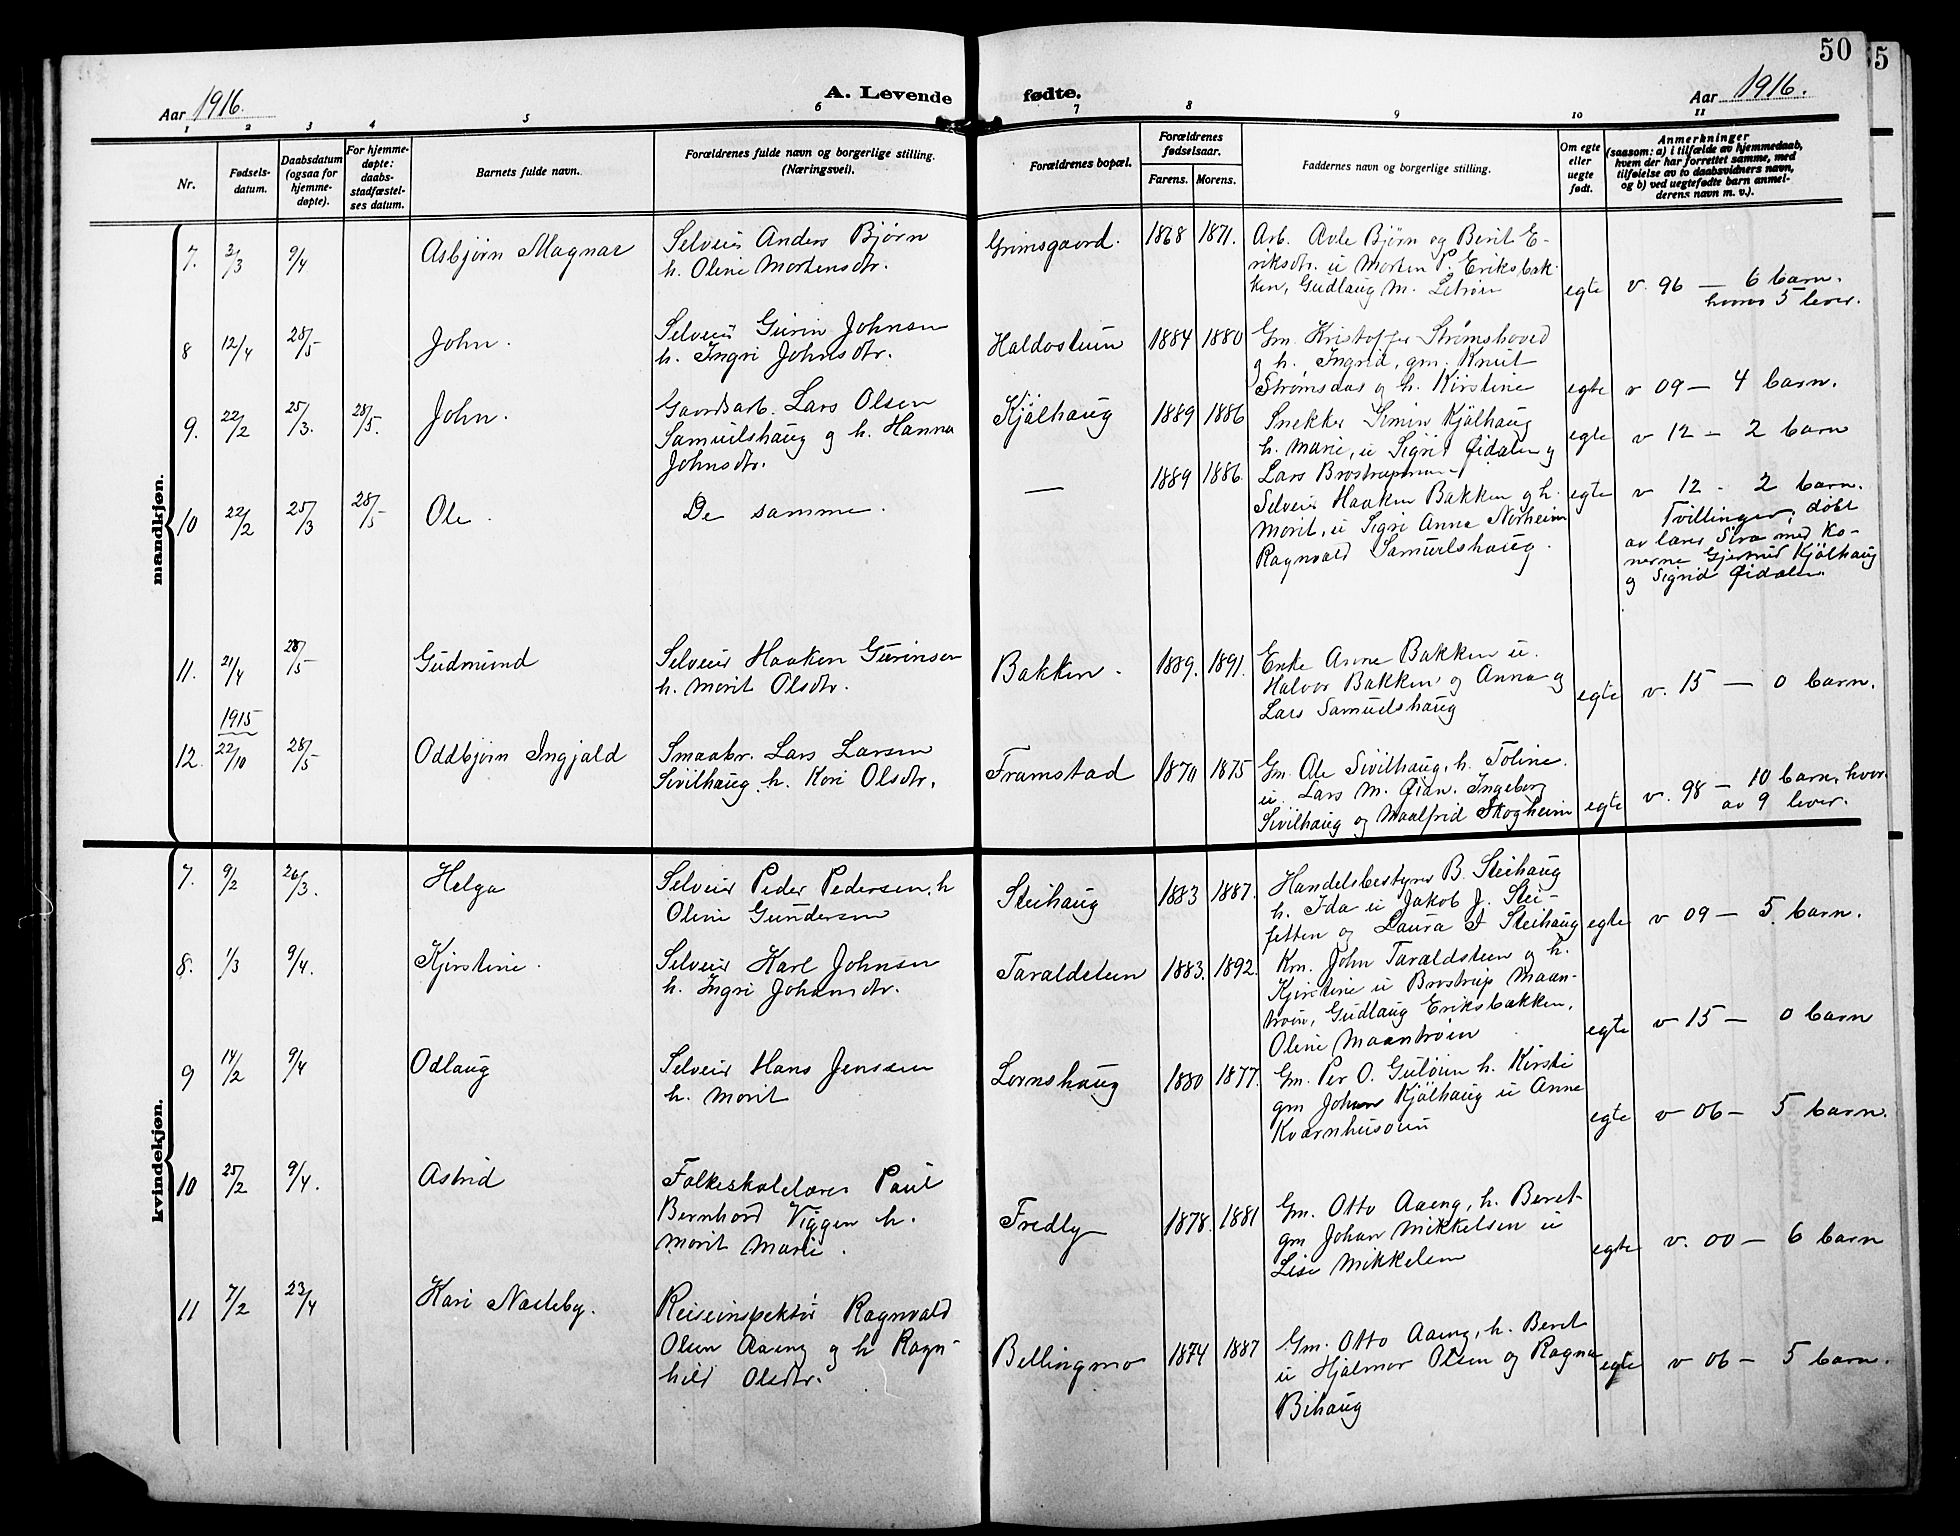 50
55
Aar 1916.
A. Levende fødte.
Aar 1916.
1 2 3 4 5 6 7 8 9 10 11
Nr.
Fødsels-
datum.
Daabsdatum
(ogsaa for
hjemme-
døpte).
For hjemme-
døpte:
daabs-
stadfæstel-
ses datum.
Barnets fulde navn.
Forældrenes fulde navn og borgerlige stilling.
(Næringsvei).
Forældrenes bopæl.
Forældrenes
fødselsaar.
Farens. Morens.
Faddernes navn og borgerlige stilling.
Om egte
eller
uegte
født.
Anmerkninger
(saasom: a) i tilfælde av hjemmedaab,
hvem der har forrettet samme, med
tilføielse av to daabsvidners navn,
og b) ved uegtefødte barn anmel-
derens navn m. v.).
mandkjøn.
7. 3/3 9/4 Asbjørn Magnar
Selveier Anders Bjørn
h. Oline Mortensdtr.
Grimsgaard. 1868 1871.
Arb. Avle Bjørn og Berit E-
riksdtr. u Morten P. Eriksbak-
ken, Gudlaug M.
egte
v. 96 — 6 barn.
hvorav 5 lever.
8 12/4 28/5 John.
Selveier Gurin Johnsen
h. Ingri Johnsdtr.
Haldosteien 1884 1880
Gm. Kristoffer Strømshoved
og h. Ingrid, gm. Knut
Strømsaas og h. Kirstine
egte
v 09 — 4 barn.
9. 22/2 25/3. 28/5. John.
Gaardsarb. Lars Olsen
Samuelshaug og h. Hanna
Johnsdtr.
Kjølhaug 1889 1886
Snekker Simen Kjølhaug
h. Marie, u Sigrid Øidalen og
Lars
egte
v 12 — 2 barn
10 22/2 25/3 28/5 Ole.
De samme.
— 1889 1886.
Selveier Haaken Bakken og h.
Morit, u Sigri Anna Norheim
Ragnvald Samuelshaug.
egte
v 12 - 2 barn.
Tvillinger, døbt
av lærer Siva med Ko-
nerne Gjertrud Kjølhaug
og Sigrid Øidalen.
11. 21/4 28/5 Gudmund
Selveier Haaken Gurinsen
h. Morit Olsdtr.
Bakken. 1889. 1891.
Enke Anne Bakken u.
Halvor Bakken og Anna og
Lars Samuelshaug
egte
v. 15 — 0 barn.
1915
12. 22/10 28/5 Oddbjørn Ingjald
Smaabr. Lars Larsen
Sivilhaug h. Kari Olsdtr.
Framstad 1870 1875
Gm. Ole Sivilhaug, h. Toline.
u. Lars M. Øian, Ingeborg
Sivilhaug og Maalfrid Skogheim
egte
v. 98 — 10 barn, hvor-
av 9 lever.
kvindekjøn.
7. 9/2 26/3. Helga
Selveier Peder Pedersen, h
Oline Gundersen
Steihaug 1883 1887.
Handelsbestyrer B. Steihaug
h. Ida u Jakob J. Stei-
fetten og Laura J Steihaug
egte
v 09 — 5 barn.
8. 1/3 9/4. Kjirstine.
Selveier Karl Johnsen
h. Ingri Johansdtr.
Taraldsteien 1883. 1892.
Km. John Taraldsteien og h.
Kjirstine u Brostrup Maan-
trøien, Gudlaug Eriksbakken,
Oline Maantrøien
egte
v 15 — 0 barn
9 14/2 9/4 Odlaug
Selveier Hans Jenssen
h. Morit
Lornshaug 1880 1877.
Gm. Per O. Guløien h. Kirsti
gm Johan Kjølhaug u Anne
Kvarnhusøien
egte
v 06 — 5 barn.
10 25/2 9/4. Astrid
Folkeskolelærer Paul
Bernhard Viggen h.
Morit Marie.
Fredly 1878. 1881
Gm. Otto Aaeng, h. Beret
gm Johan Mikkelsen u
Lise Mikkelsen
egte
v. 00 — 6 barn
11 7/2 23/4 Kari Nasteby.
Reiseinspektør Ragnvald
Olsen Aaeng og h Ragn-
hild Olsdtr.
Bellingmo 1874 1887
Gm. Otto Aaeng, h. Beret
u Hjalmar Olsen og Ragna
Bihaug
egte
v 06 — 5 barn.